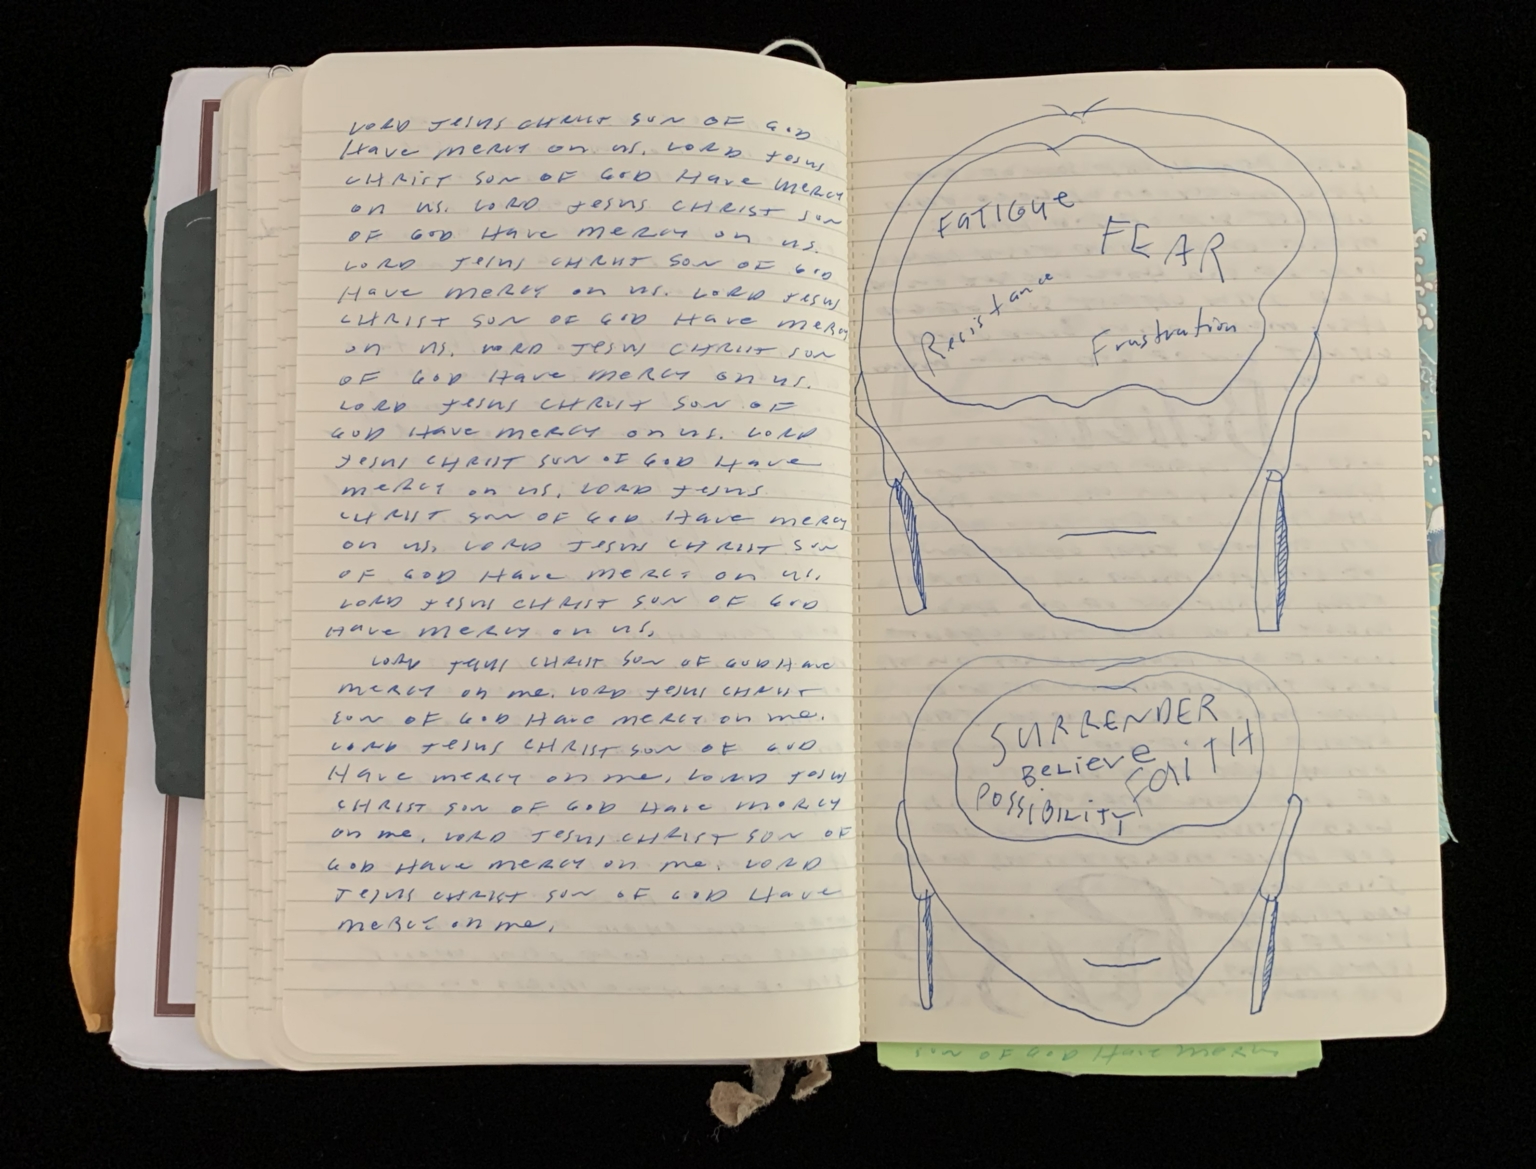 LORD Jesus CHRIST SON OF GOD
Have mercy on us. LORD Jesus
CHRIST SON OF GOD Have mercy
on us. LORD Jesus CHRIST SON
OF GOD Have mercy on us.
LORD Jesus CHRIST SON OF GOD
Have mercy on us. LORD Jesus
CHRIST SON OF GOD Have mercy
on us. LORD Jesus CHRIST SON
OF GOD Have mercy on us.
LORD Jesus CHRIST SON OF
GOD Have mercy on us. LORD
Jesus CHRIST SON OF GOD Have
mercy on us. LORD Jesus
CHRIST SON OF GOD Have mercy
on us. LORD Jesus CHRIST SON
OF GOD Have mercy on us.
LORD Jesus CHRIST SON OF GOD
Have mercy on us.
LORD Jesus CHRIST SON OF GOD Have
mercy on me. LORD Jesus CHRIST
SON OF GOD Have mercy on me.
LORD Jesus CHRIST SON OF GOD
Have mercy on me. LORD Jesus
CHRIST SON OF GOD Have mercy
on me. LORD Jesus CHRIST SON OF
GOD Have mercy on me. LORD
Jesus CHRIST SON OF GOD Have
mercy on me.
FATIGUE
FEAR
Resistance
Frustration
SURRENDER
Believe
FAITH
POSSIBILITY
SON OF GOD Have mercy